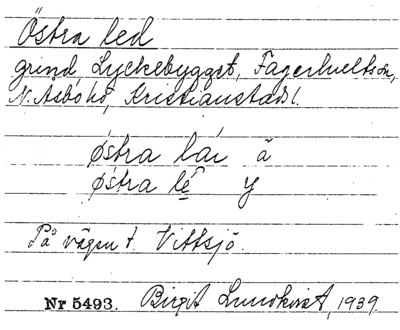 Östra led
grind, Lyckebygget, Fagerhultssn,
N. Åsbo hd, Kristianstads l.
østra lái ä
østra lę́ y
På vägen t. Vittsjö.
Nr 5493. Birgit Lundkvist, 1939.